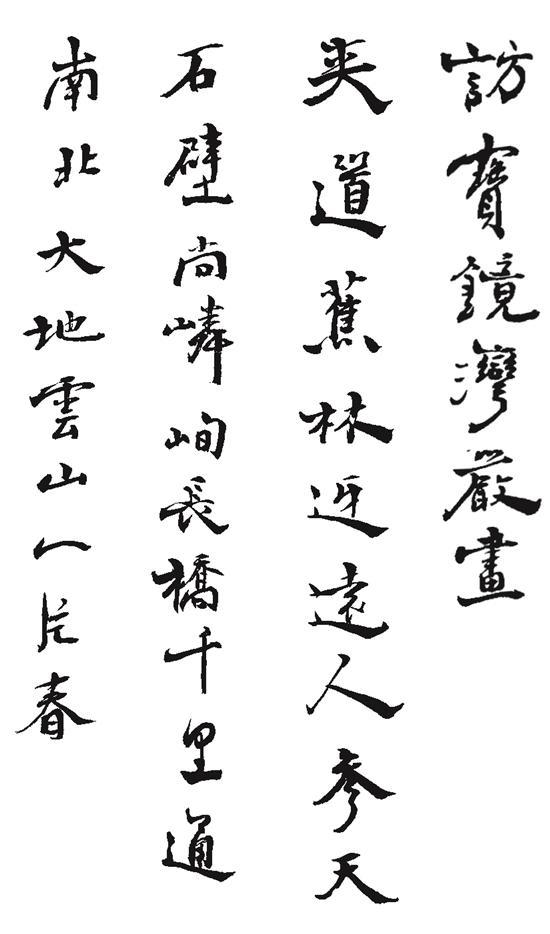 訪寶鏡灣嚴畫
夾道蕉林迓遠人參天
石壁尚嶙峋長橋千里通
南北大地雲山一片春